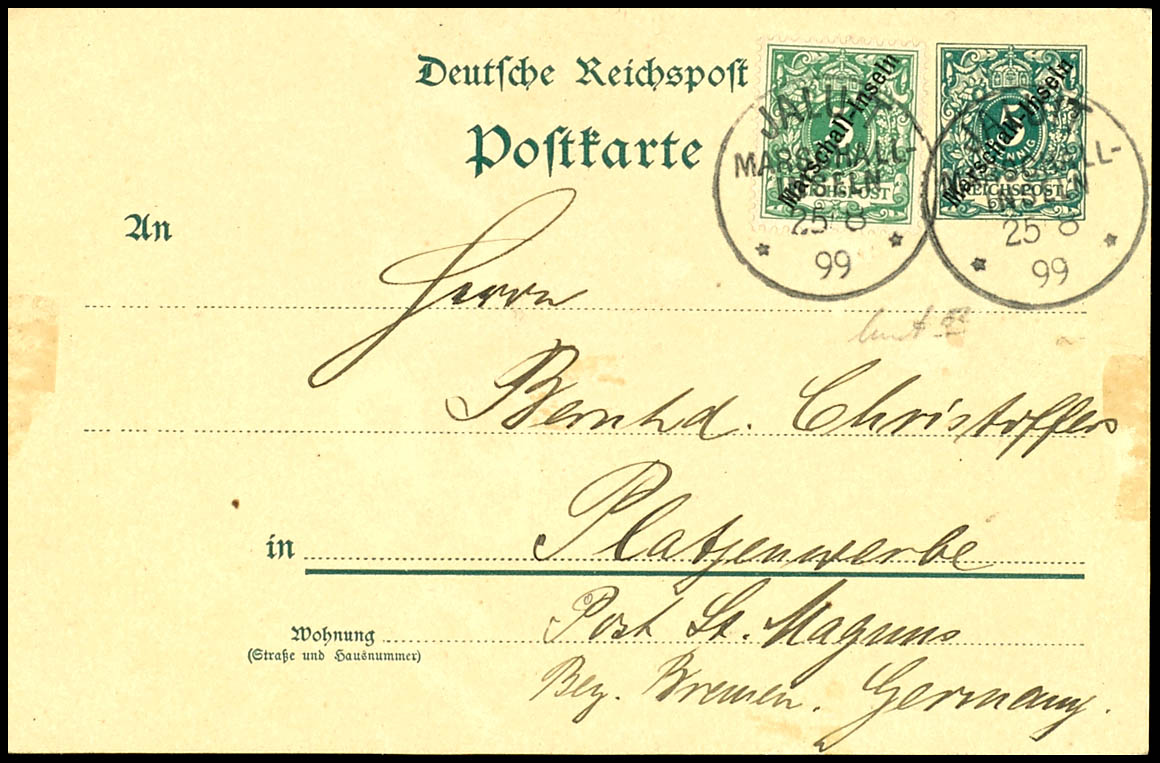 Deutsche Reichspost
Postkarte
5
REICHSPOST
Marschall-Inseln
5
PFENNIG
REICHSPOST
Marschall-Inseln
JALUIT
MARSCHALL-
INSELN
25 8
99
JALUIT
MARSCHALL-
INSELN
25 8
99
An
Herrn
Bernhd. Christoffers
in Platjenwerbe
Wohnung Post St. Magnus
(Straße und Hausnummer)
Bez. Bremen. Germany.